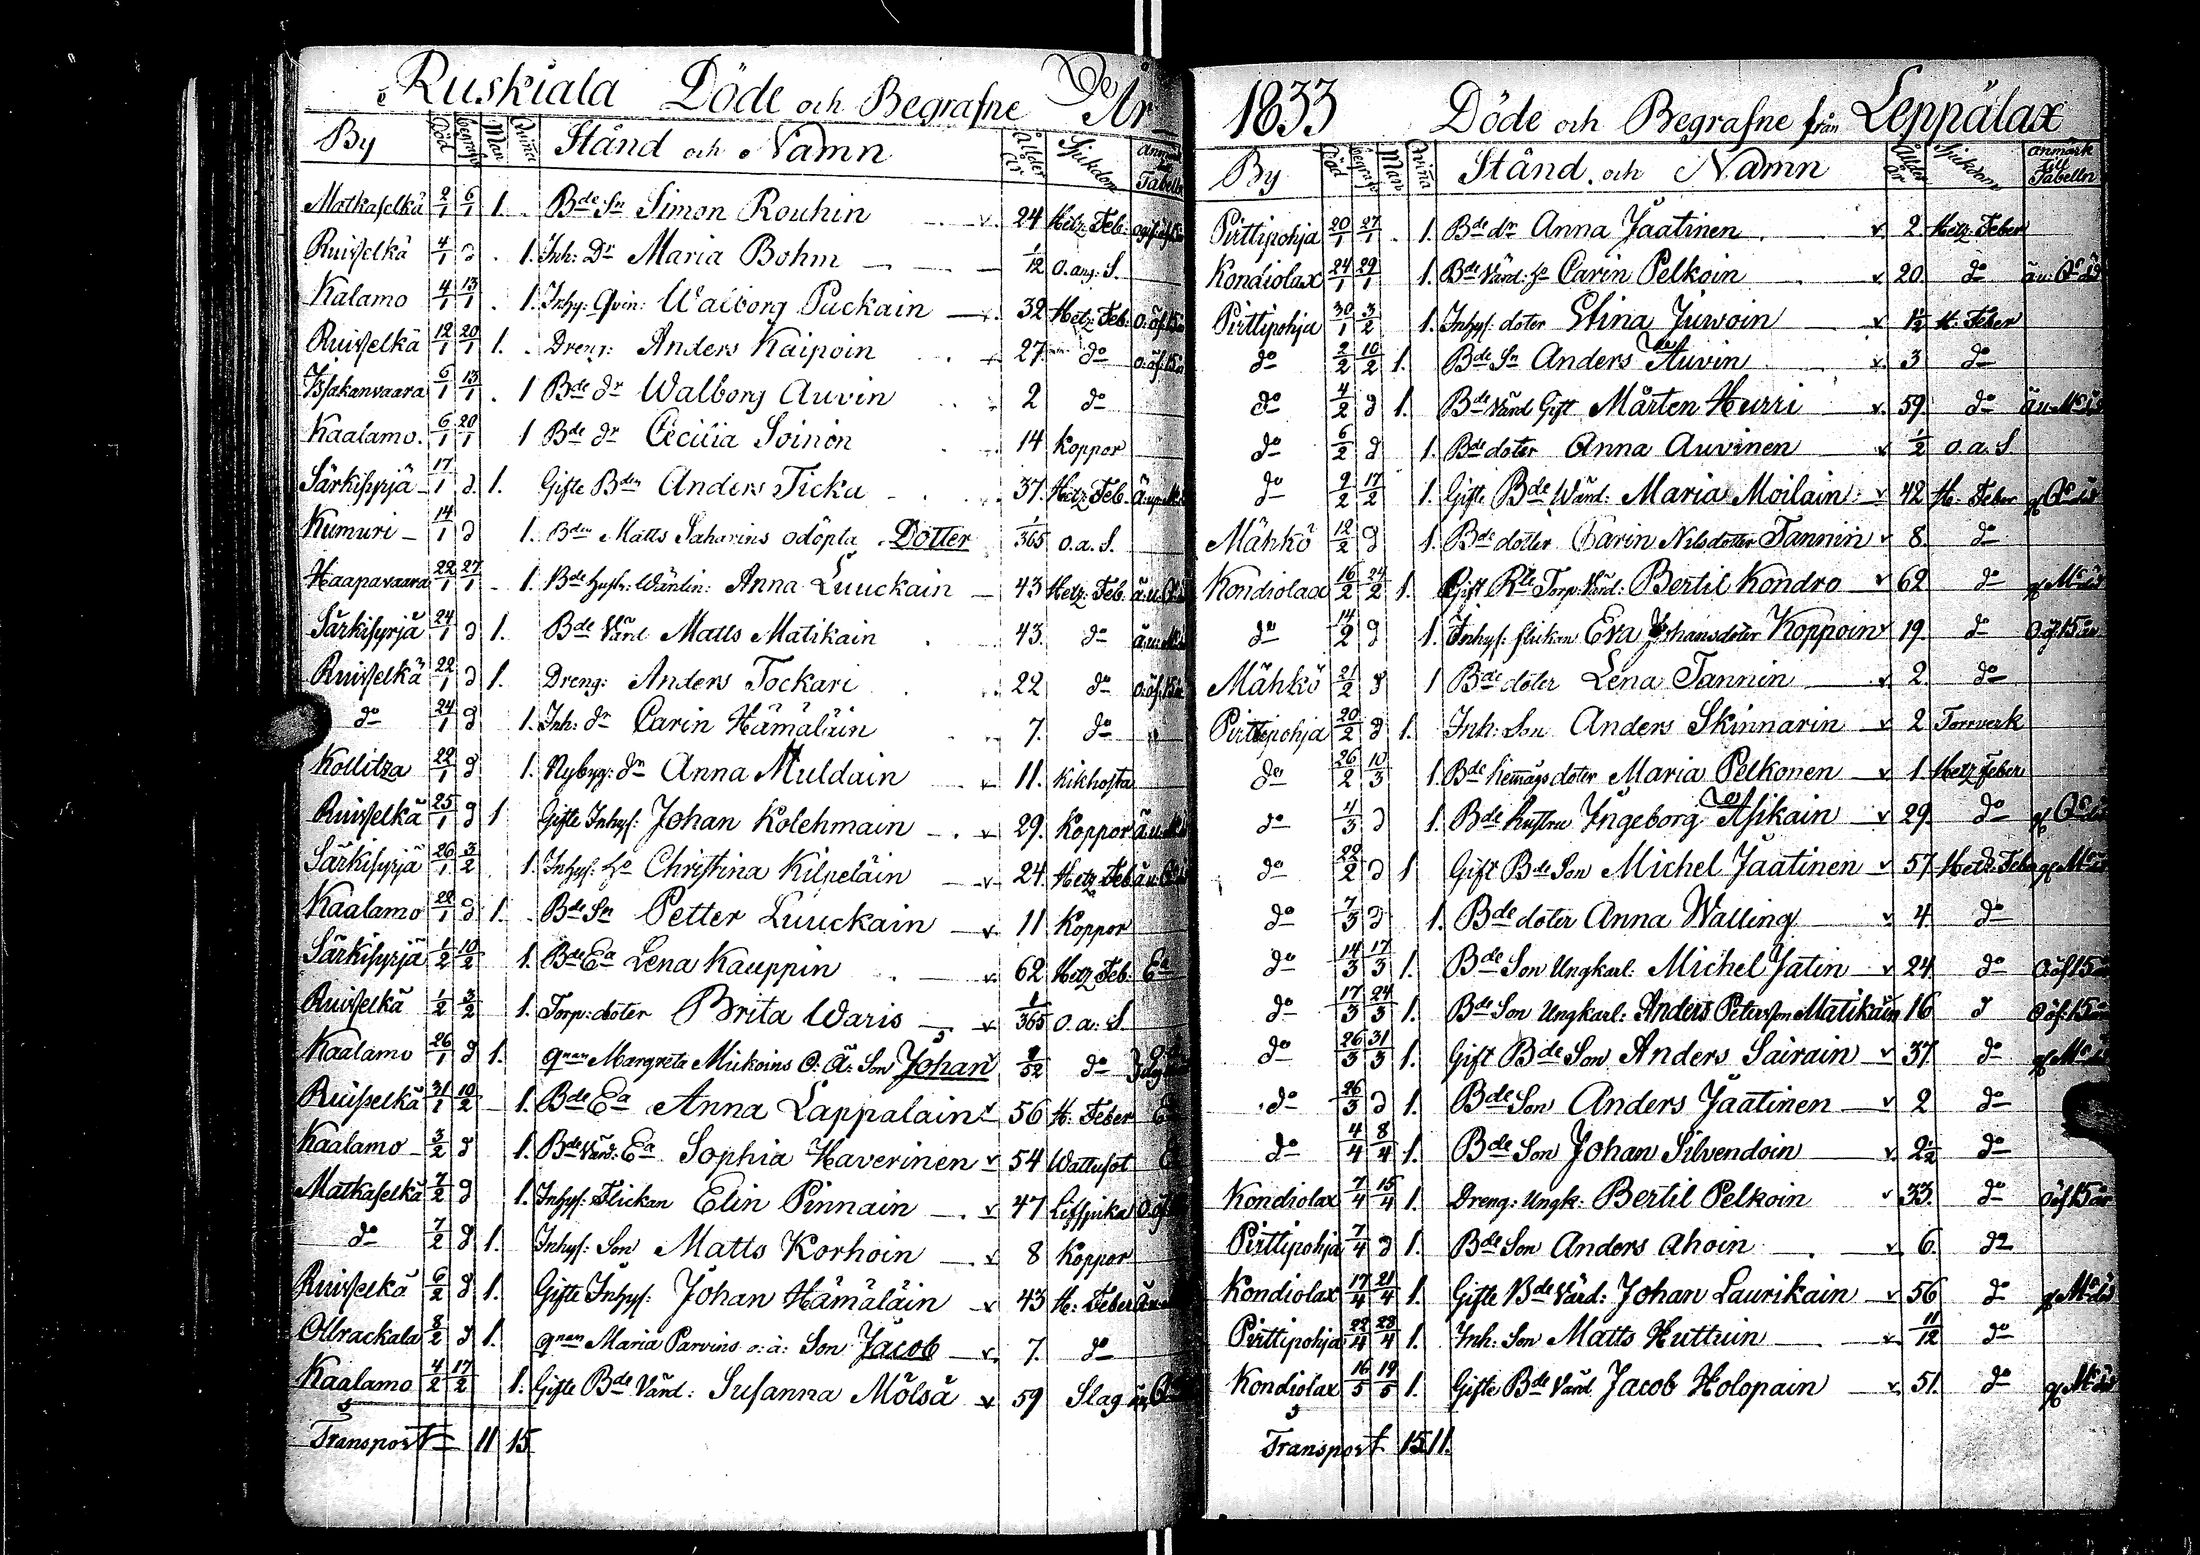 Ruskiala Döde och Begrafne År
By Död begrafn Man Qvina Stånd och Namn Ålder år Sjukdom Tabelln
Matkaselkä 2/1 6/1 1. Bde Sn Simon Rouhin v. 24 Hetz. Feb:
Ruisselkä 4/1 d 1. Inh: Dr Maria Bohm 1/12 o. ang: S.
Kalamo 4/1 13/1 1. Inhy: Qvin: Walborg Puckain 32 Hetz: Feb:
Ruisselkä 12/1 20/1 1. Dreng: Anders Kaipoin 27 do
Issakanvaara 6/1 13/1 1 Bde dr Walborg Auvin 2 do
Kaalamo. 6/1 20/1 1 Bde dr Cecilia Soinin 14 Koppor
Särkisyrjä 17/1 d 1. Gifte Bden Anders Ticka 37 Hetz Feb.
Kumuri 14/1 d 1. Bden Matts Saharins odöpta Dotter 1/365 o.a. S.
Haapavaara 22/1 27/1 1. Bde hustr: Wärdin: Anna Luuckain 43 Hetz: Feb.
Särkisyrjä 24/1 d 1. Bde Värd Matts Matikain 43. do
Ruisselkä 22/1 d 1. Dreng: Anders Tockari 22 do
do 24/1 d 1. Inh: dr Carin Hämäläin 7. do
Kollitza 22/1 d 1. Nybyg: dr Anna Muldain v 11. Kikhosta
Ruisselkä 25/1 d 1 Gifte Inhys: Johan Kolehmain v 29. Koppor
Särkisyrjä 26/1 3/2 1. Inhys: Christina Kilpeläin v 24 Hetz Feb
Kaalamo 28/1 d 1. Bde Sn Petter Luuckain v 11 Koppor
Särkisyrjä 1/2 10/2 1. Bde Ea Lena Kauppin v 62 Hetz Feb. Ea
Ruisselkä 1/2 3/2 1. Torp: doter Brita Waris v 1/365 o. a: S.
Kaalamo 26/1 d 1. qnan Margreta Mickoins O: Ä: Son Johan /52 do
Ruisselkä 31/1 10/2 1. Bde Ea Anna Lappalain v 56 H: Feber
Kaalamo 3/2 d 1. Bde Värd: Ea Sophia Haverinen v 54 Wattusot
Matkaselkä 7/2 d 1. Inhys: Flickan Elin Pinnain v 47
do 7/2 d 1. Inhys: Son Matts Korhoin v 8 Koppor
Ruisselkä 6/2 d 1. Gifte Inhys: Johan Hämäläin v 43 H: Feber
Ollrackala 8/2 d 1. qnan Maria Parvins o: ä: Son Jacob v. 7. do
Kaalamo 4/2 17/2 1. Gifte Bde Värd: Susanna Mölsä v 59 Slag
Transport 11 15
1833 Döde och Begrafne från Leppälax
By Död begrafn Man Qvina Stånd och Namn Ålder år Sjukdom anmärk till Tabelln
Pirttipohja 20/1 27/1 1. Bde dr Anna Jaatinen v. 2. Hetz Feber
Kondiolax 24/1 29/1 1. Bde Värd: Carin Pelkoin v 20. do
Pirttipohja 30/1 3/2 1. Inhys: doter Stina Juwoin v 1½ H: Feber
do 2/2 10/2 1. Bde Sn Anders Auvin v. 3 do
do 4/2 d 1. Bde Värd Gift Mårten Hurri v. 59. do
do 6/2 d 1. Bde doter Anna Auvinen v ½ o. a. S
do 9/2 17/2 1. Gifte Bde Wärd: Maria Moilain v 42 H: Feber
Mähkö 12/2 d 1. Bde dotter Carin Nilsdotter Tannin v 8. do
Kondiolax 16/2 24/2 1. Gift Rte Torp: Värd: Bertil Kondro v 62 do
do 14/2 d 1. Inhys: flickan Eva Johansdoter Koppoin v 19. do
Mähkö 21/2 d 1 Bde doter Lena Tannin v 2. do
Pirttipohja 20/2 d 1. Inh: Son Anders Skinnarin v 2 Torrverk
do 26/2 10/3 1. Bde hemågs doter Maria Pelkonen v 1. Hetz feber
do 4/3 d 1. Bde hustru Ingeborg Asikain v 29. do
do 22/2 d 1 Gift Bde Son Michel Jaatinen v 57 Hetz: Feber
do 7/3 d 1. Bde doter Anna Walling v 4. do
do 14/3 17/3 1. Bde Son Ungkarl: Michel Jatin v 24 do
do 17/3 24/3 1. Bde Son Ungkarl: Anders Petersson Matikain 16 d
do 26/3 31/3 1. Gift Bde Son Anders Sairain v 37. do
do 26/3 d 1. Bde Son Anders Jaatinen v 2 do
do 4/4 8/4 1. Bde Son Johan Silvendoin v. 2½ do
Kondiolax 7/4 15/4 1. Dreng: Ungk: Bertil Pelkoin v 33. do
Pirttipohja 7/4 d 1. Bde Son Anders Ahoin v. 6. do
Kondiolax 17/4 21/4 1. Gifte Bde Värd: Johan Laurikain v 56 do
Pirttipohja 22/4 28/4 1. Inh: Son Matts Huttuin v. 11/12 do
Kondiolax 16/5 19/5 1. Gifte Bde Värd. Jacob Holopain v. 51. do
Transport 15 11.